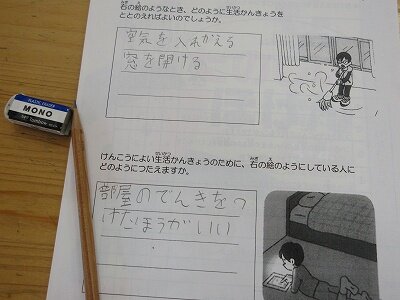 右の絵のようなとき、どのように生活かんきょうを
ととのえればよいのでしょうか。
空気を入れかえる
窓を開ける
MONO
けんこうによい生活かんきょうのために、右の絵のようにしている人に
どのようにつたえますか。
部屋のでんきをつ
けたほうがいい